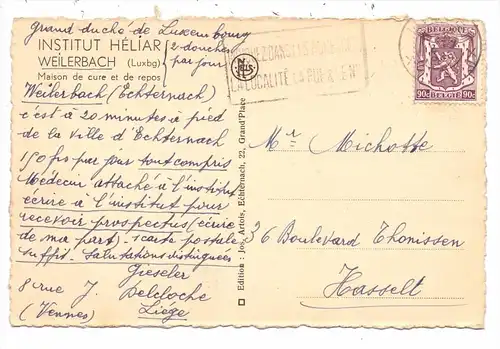 grand duché de Luxembourg
INSTITUT HÉLIAR
WEILERBACH (Luxbg)
Maison de cure et de repos
2 douches
par jour
Weilerbach (Echternach)
c'est à 20 minutes à pied
de la ville d'Echternach
150 frs par jour tout compris
Médecin attaché à l'institut
écrire à l'institut pour
recevoir prospectus (écrire
de ma part). 1 carte postale
suffit. Salutations distinguées
Gieseler
8 rue J. Delcloche
(Vennes) Liége
Edition : Jos. Artois, Echternach, 22, Grand'Place
NELS
LA LOCALITÉ
BELGIQUE
90c 90c
BELGIE
Mr Michotte
36 Boulevard Thonissen
Hasselt